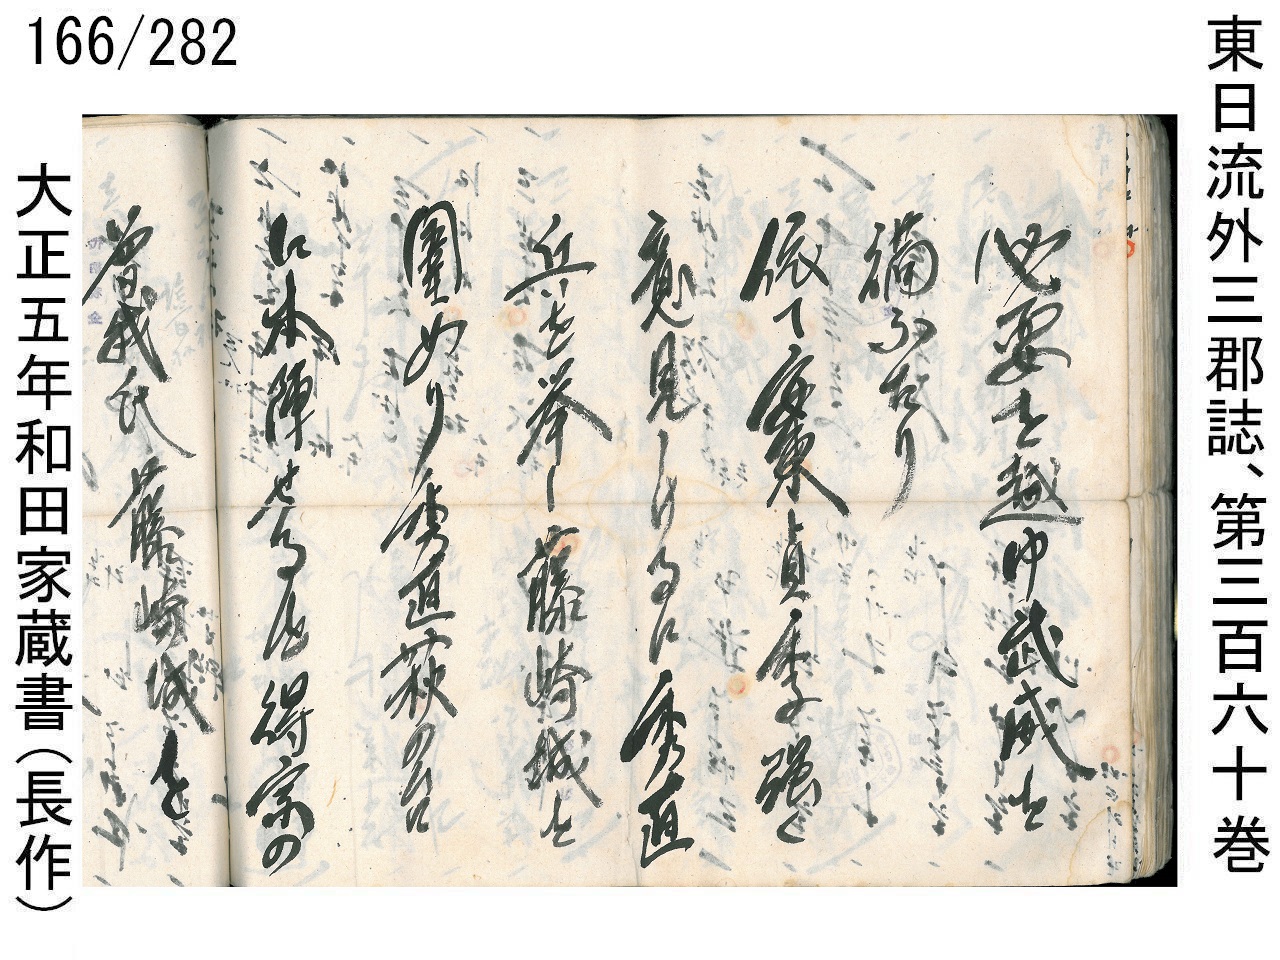 166/282
東日流外三郡誌、第三百六十巻
必要士越中武威を
補ふたり
依て安東貞季強く
意見しけるに秀直
兵を挙し藤崎城を
囲めり秀直萩の台
に本陣せる
得宗の
曽我氏藤崎城を
大正五年和田家蔵書(長作)